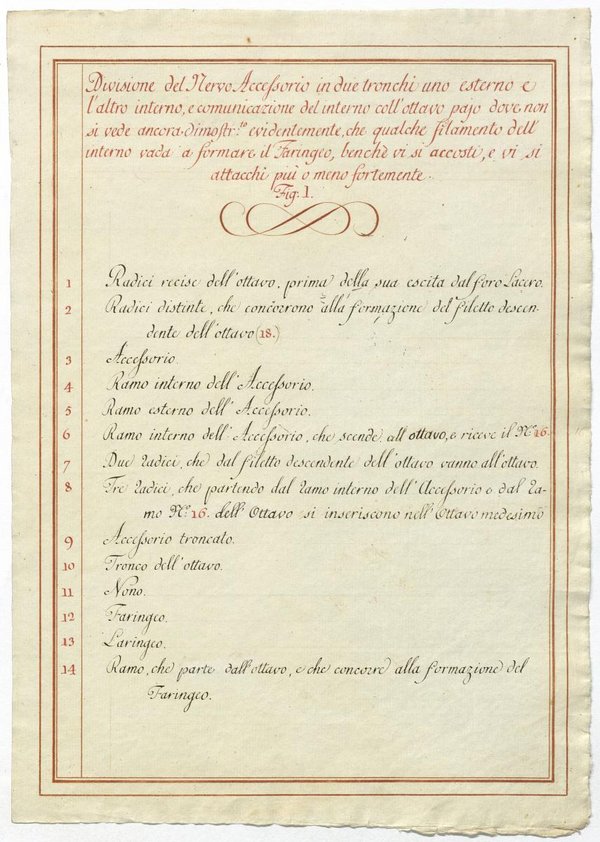 Divisione del Nervo Accessorio in due tronchi uno esterno e
l'altro interno, e comunicazione del interno coll'ottavo pajo dove non
si vede ancora dimostr:to evidentemente, che qualche filamento dell'
interno vada a formare il Faringeo, benchè vi si accosti, e vi si
attacchi più o meno fortemente.
Fig. 1.
1 Radici recise dell'ottavo, prima della sua escita dal foro Lacero.
2 Radici distinte, che concorrono alla formazione del filetto descen-
dente dell'ottavo (18.)
3 Accessorio.
4 Ramo interno dell'Accessorio.
5 Ramo esterno dell'Accessorio.
6 Ramo interno dell'Accessorio, che scende all'ottavo, e riceve il N.º 16.
7 Due radici, che dal filetto descendente dell'ottavo vanno all'ottavo.
8 Tre radici, che partendo dal ramo interno dell'Accessorio e dal ra-
mo N.º 16. dell'Ottavo si inseriscono nell'Ottavo medesimo
9 Accessorio troncato.
10 Tronco dell'ottavo.
11 Nono.
12 Faringeo.
13 Laringeo.
14 Ramo, che parte dall'ottavo, e che concorre alla formazione del
Faringeo.